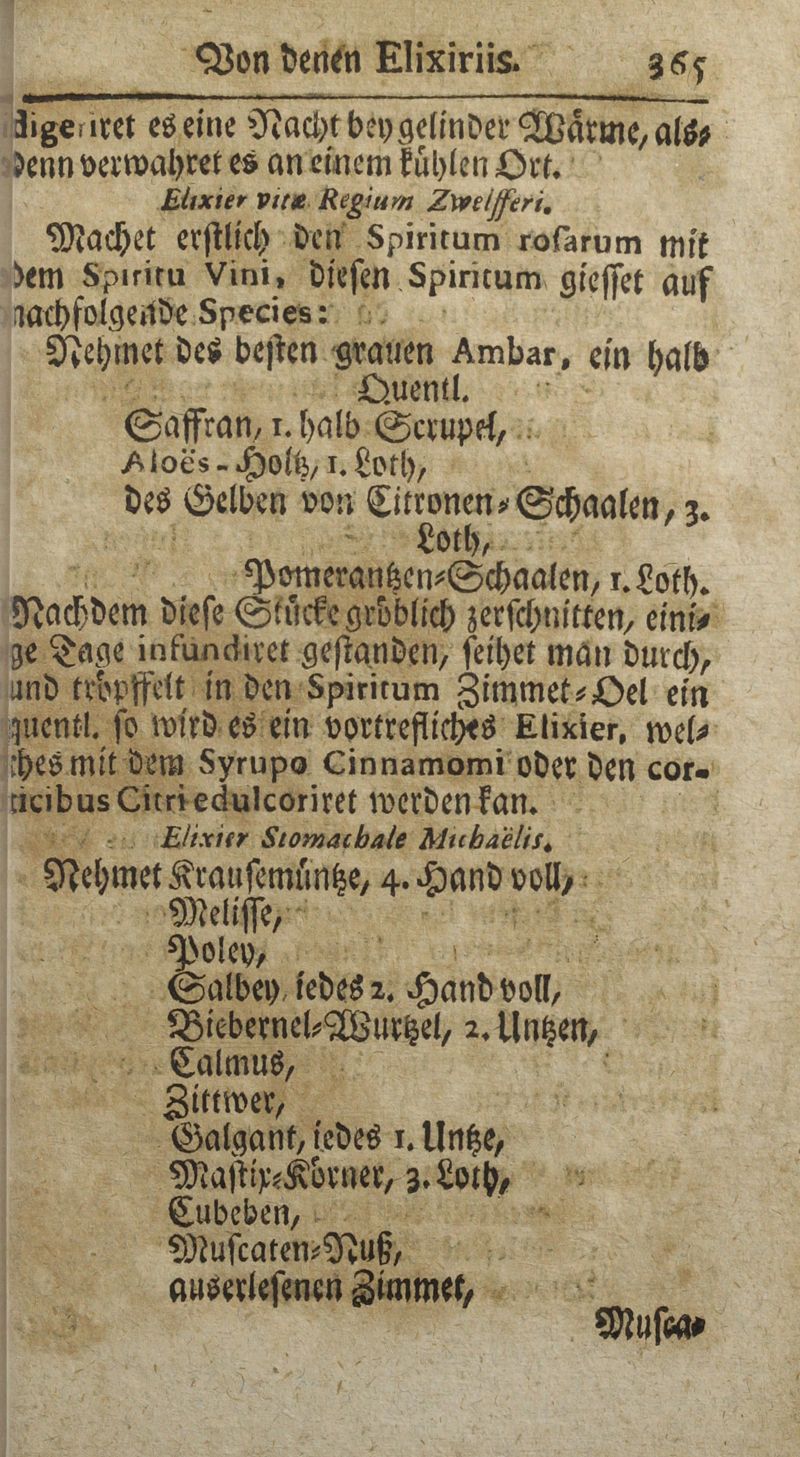 Von denen Elixiriis. 365
digeriret es eine Nacht bey gelinder Wärme, als-
denn verwahret es an einem kühlen Ort.
Elixier vitæ Regium Zwelfferi.
Machet erstlich den Spiritum rosarum mit
dem Spiritu Vini, diesen Spiritum giesset auf
nachfolgende Species:
Nehmet des besten grauen Ambar, ein halb
Quentl.
Saffran, 1. halb Scrupel,
Aloës-Holtz, 1. Loth,
des Gelben von Citronen-Schaalen, 3.
Loth,
Pomerantzen-Schaalen, 1. Loth.
Nachdem diese Stücke gröblich zerschnitten, eini-
ge Tage infundiret gestanden, seihet man durch,
und tröpffelt in den Spiritum Zimmet-Oel ein
quentl. so wird es ein vortrefliches Elixier, wel-
ches mit dem Syrupo Cinnamomi oder den cor-
ticibus Citri edulcoriret werden kan.
Elixier Stomachale Michaëlis.
Nehmet Krausemüntze, 4. Hand voll,
Melisse,
Poley,
Salbey iedes 2. Hand voll,
Biebernel-Wurtzel, 2. Untzen,
Calmus,
Zittwer,
Galgant, iedes 1. Untze,
Mastix-Körner, 3. Loth,
Cubeben,
Muscaten-Nuß,
auserlesenen Zimmet,
Musca-